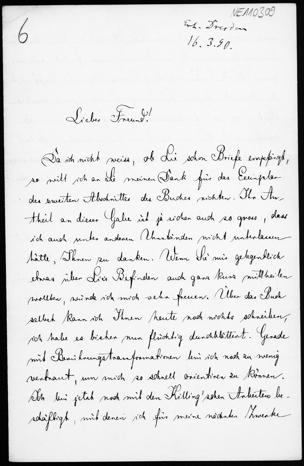 NEA10309
6
Dresden
16.3.90.
Lieber Freund!
Da ich nicht weiss, ob Lie schon Briefe empfängt,
so will ich an Sie meinen Dank für das Exemplar
des zweiten Abschnittes des Buches richten. Ihr An-
theil an dieser Gabe ist ja sicher auch so gross, dass
ich auch unter anderen Umständen nicht unterlassen
hätte, Ihnen zu danken. Wenn Sie mir gelegentlich
etwas über Lie's Befinden auch ganz kurz mittheilen
wollten, würde ich mich sehr freuen. Über das Buch
selbst kann ich Ihnen heute noch nichts schreiben,
ich habe es bisher nur flüchtig durchblättert. Gerade
mit Berührungstransformationen bin ich noch zu wenig
vertraut, um mich so schnell orientiren zu können.
Ich bin jetzt noch mit den Killing'schen Arbeiten be-
schäftigt, mit denen ich für meine nächsten Zwecke